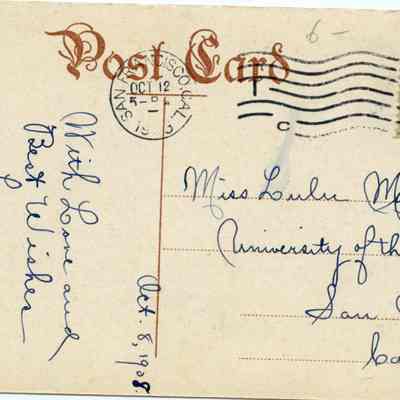 6-
Post Card
SAN FRANCISCO, CAL.
OCT 12
5-
C
With Love and
Best Wishes
L
Oct. 8, 1908.
Miss Lulu M
University of th
San
Ca